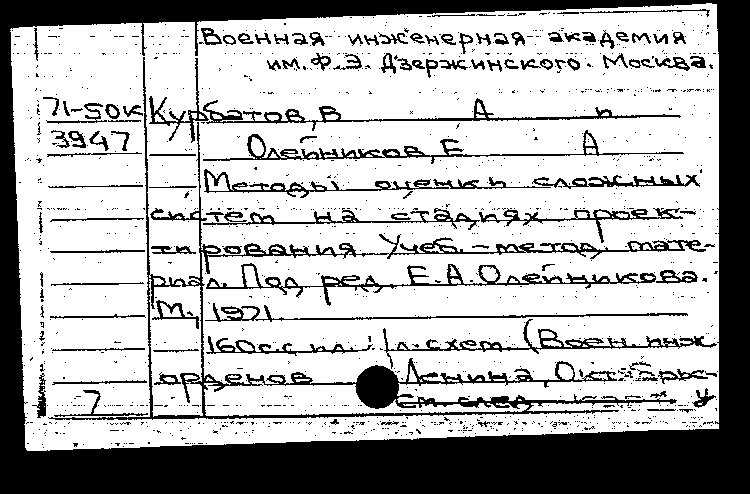 Военная инженерная академия
им. Ф.Э. Дзержинского. Москва.
71-50к Курбатов, В А и
3947 Олейников, Е А
Методы оценки сложных
систем на стадиях проек-
тирования. Учеб.-метод. мате-
риал. Под ред. Е.А. Олейникова.
М., 1971.
160 с. с ил.; 1 л. схем. (Воен. инж.
орденов Ленина, Октябрь-
7 см. след. карт. у